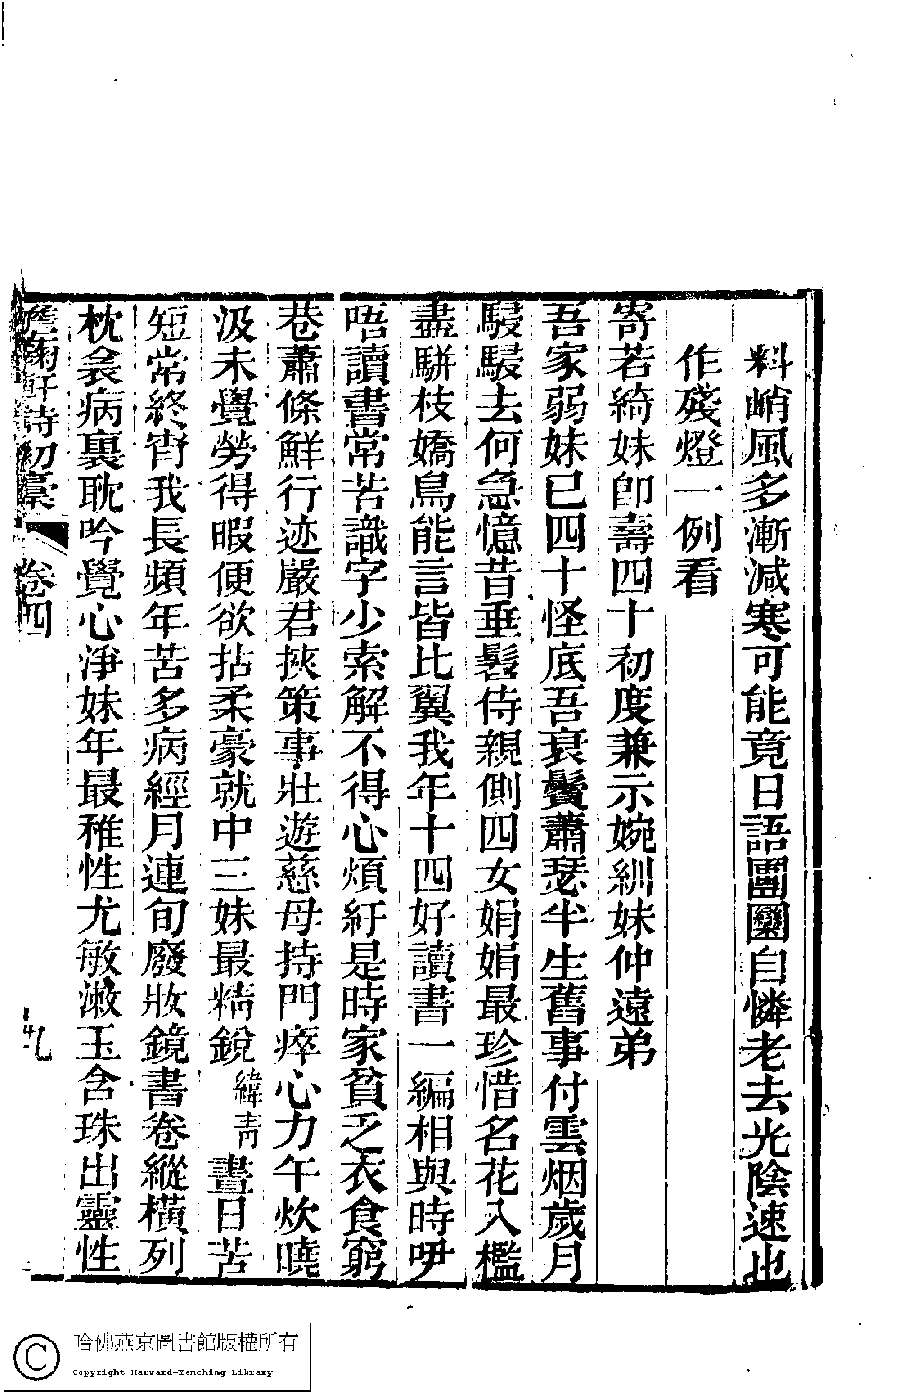 料峭風多漸減寒可能竟日語團圞自憐老去光陰速也
作殘燈一例看
寄若綺妹即壽四十初度兼示婉紃妹仲遠弟
吾家弱妹已四十怪底吾衰鬢蕭瑟半生舊事付雲烟歲月
駸駸去何急憶昔垂髫侍親側四女娟娟最珍惜名花入檻
盡駢枝嬌鳥能言皆比翼我年十四好讀書一編相與時咿
唔讀書常苦識字少索解不得心煩紆是時家貧乏衣食窮
巷蕭條鮮行迹嚴君挾策事壯遊慈母持門瘁心力午炊曉
汲未覺勞得暇便欲拈柔豪就中三妹最精銳緯青晝日苦
短常終宵我長頻年苦多病經月連旬廢妝鏡書卷縱橫列
枕衾病裏耽吟覺心淨妹年最稚性尤敏漱玉含珠出靈性
澹蘜軒詩初稾 卷四 九
哈佛燕京圖書館版權所有
Copyright Harvard-Yenching Library